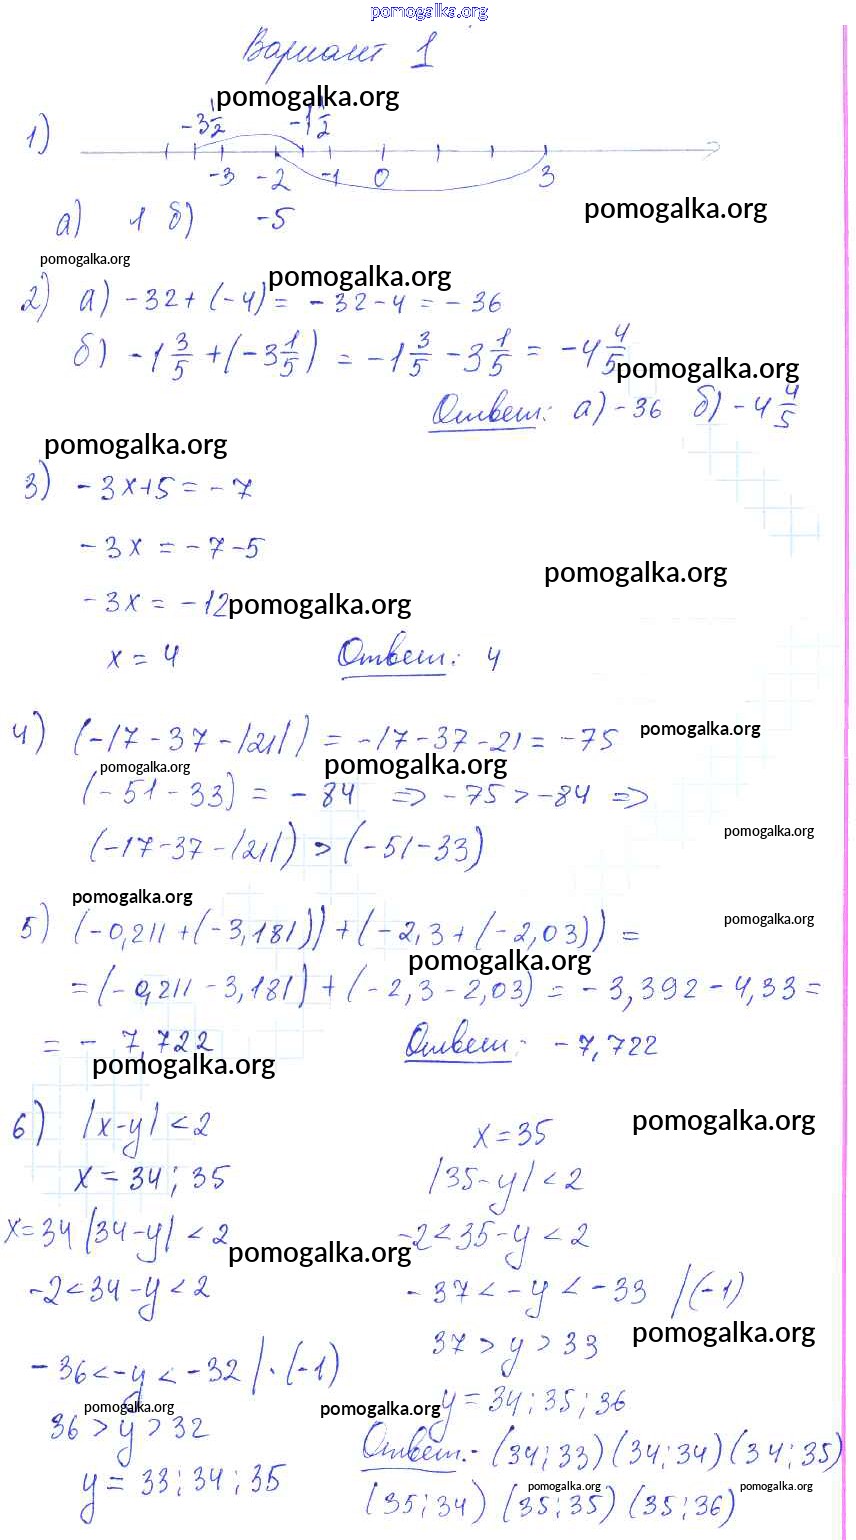 pomogalka.org
Вариант 1
pomogalka.org
1)
-3 1/2 -1 1/2
-3 -2 -1 0 3
pomogalka.org
а) 1 б) -5
pomogalka.org
pomogalka.org
2) а) -32+(-4)= -32-4=-36
б) -1 3/5 +(-3 1/5) = -1 3/5 -3 1/5 = -4 4/5
pomogalka.org
Ответ: а)-36 б)-4 4/5
pomogalka.org
3) -3x+5=-7
-3x=-7-5
pomogalka.org
-3x=-12
pomogalka.org
x=4 Ответ: 4
4) (-17-37-|21|)=-17-37-21=-75
pomogalka.org
pomogalka.org
pomogalka.org
(-51-33)=-84 => -75>-84 =>
pomogalka.org
(-17-37-|21|)>(-51-33)
pomogalka.org
pomogalka.org
5) (-0,211+(-3,181))+(-2,3+(-2,03))=
pomogalka.org
=(-0,211-3,181)+(-2,3-2,03)=-3,392-4,33=
=-7,722 Ответ: -7,722
pomogalka.org
6) |x-y|<2
pomogalka.org
x=34;35
x=34 |34-y|<2
pomogalka.org
-2<34-y<2
-36<-y<-32 |·(-1)
pomogalka.org
36>y>32
y=33;34;35
x=35
|35-y|<2
-2<35-y<2
-37<-y<-33 |(-1)
pomogalka.org
37>y>33
pomogalka.org
y=34;35;36
Ответ:- (34;33)(34;34)(34;35)
pomogalka.org
pomogalka.org
(35;34) (35;35) (35;36)